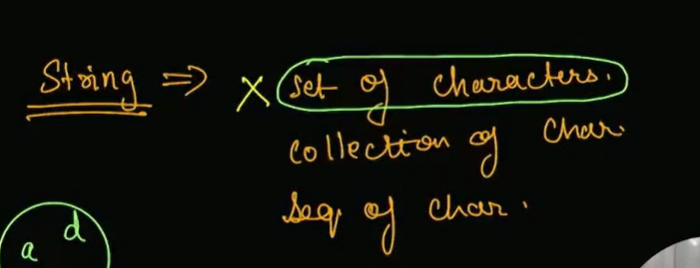 String ⇒ X set of characters.
collection of char.
seq. of char.
a d